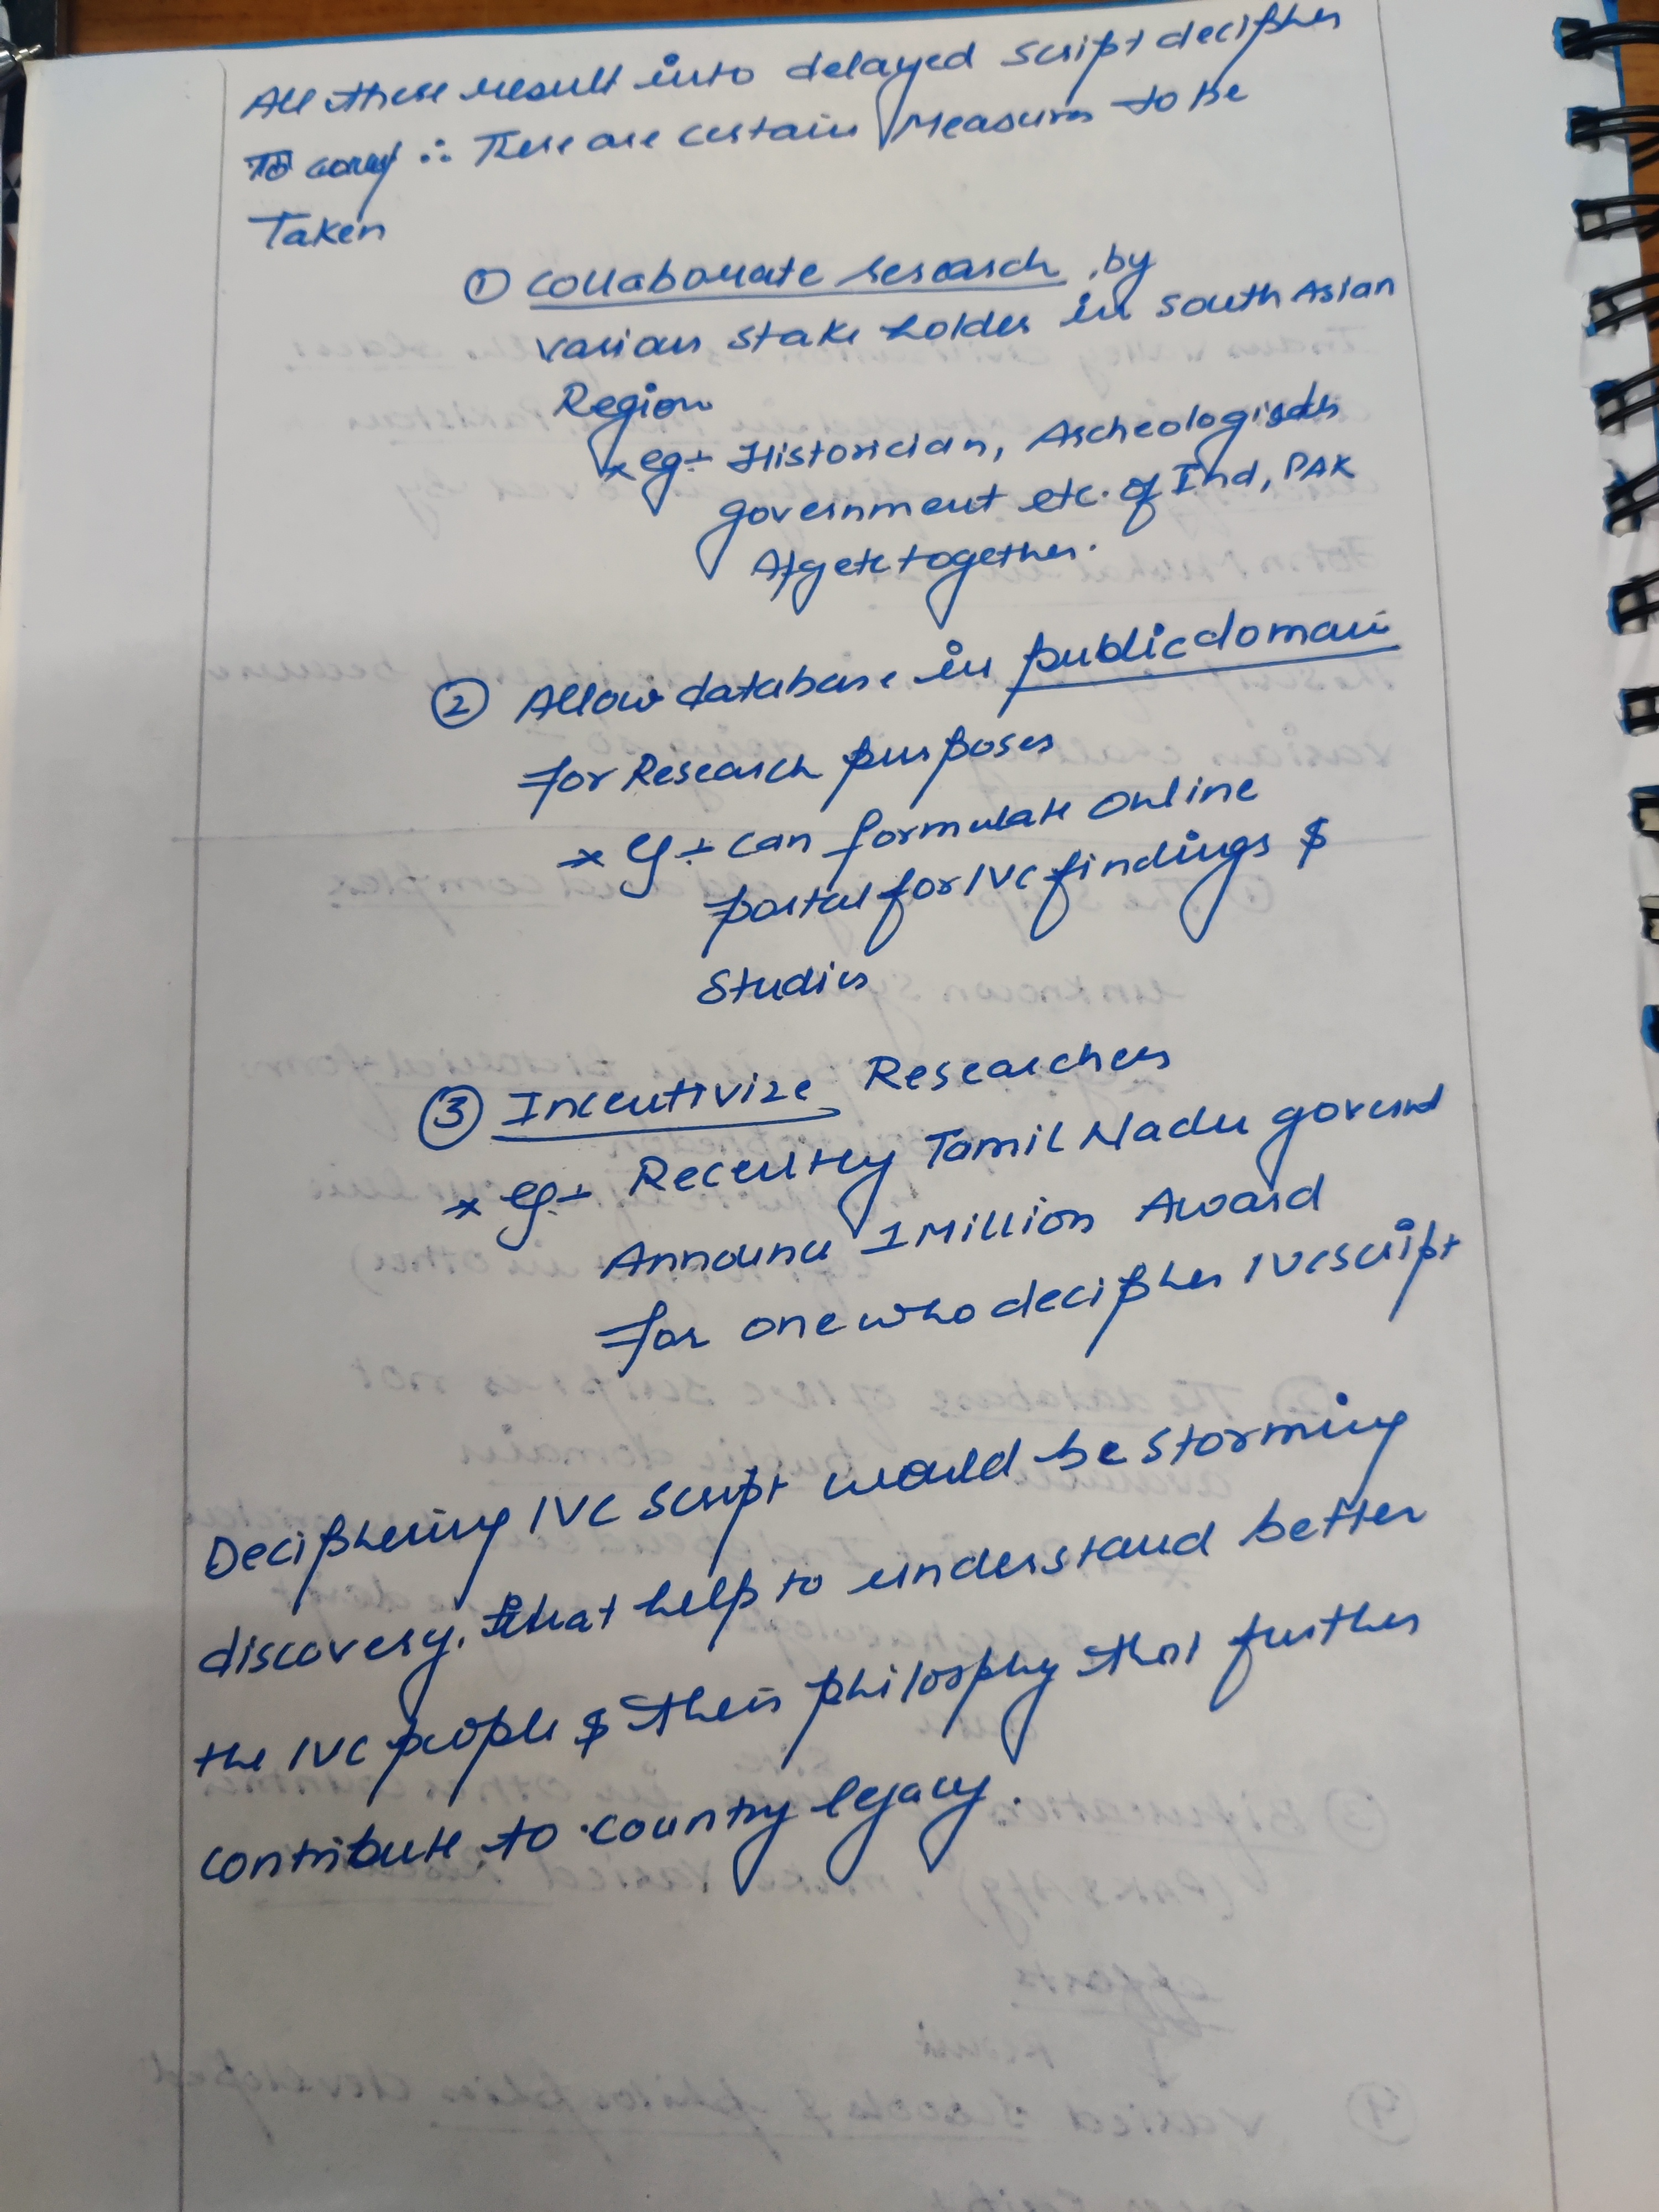 All these result into delayed script decipher
To ∴ There are certain Measures to be
Taken
① Collaborate research, by
various stake holder in South Asian
Region
* eg:- Historician, Archeologists
government etc. of Ind, PAK
Afg etc together.
② Allow database in public domain
for Research purposes
* eg:- can formulate online
portal for IVC findings &
Studies
③ Incentivize Researchers
* eg:- Recently Tamil Nadu
Announce 1 Million Award
for one who decipher IVC script
Deciphering IVC script would be storming
discovery, that help to understand better
the IVC people & their philosphy that further
contribute to country legacy.